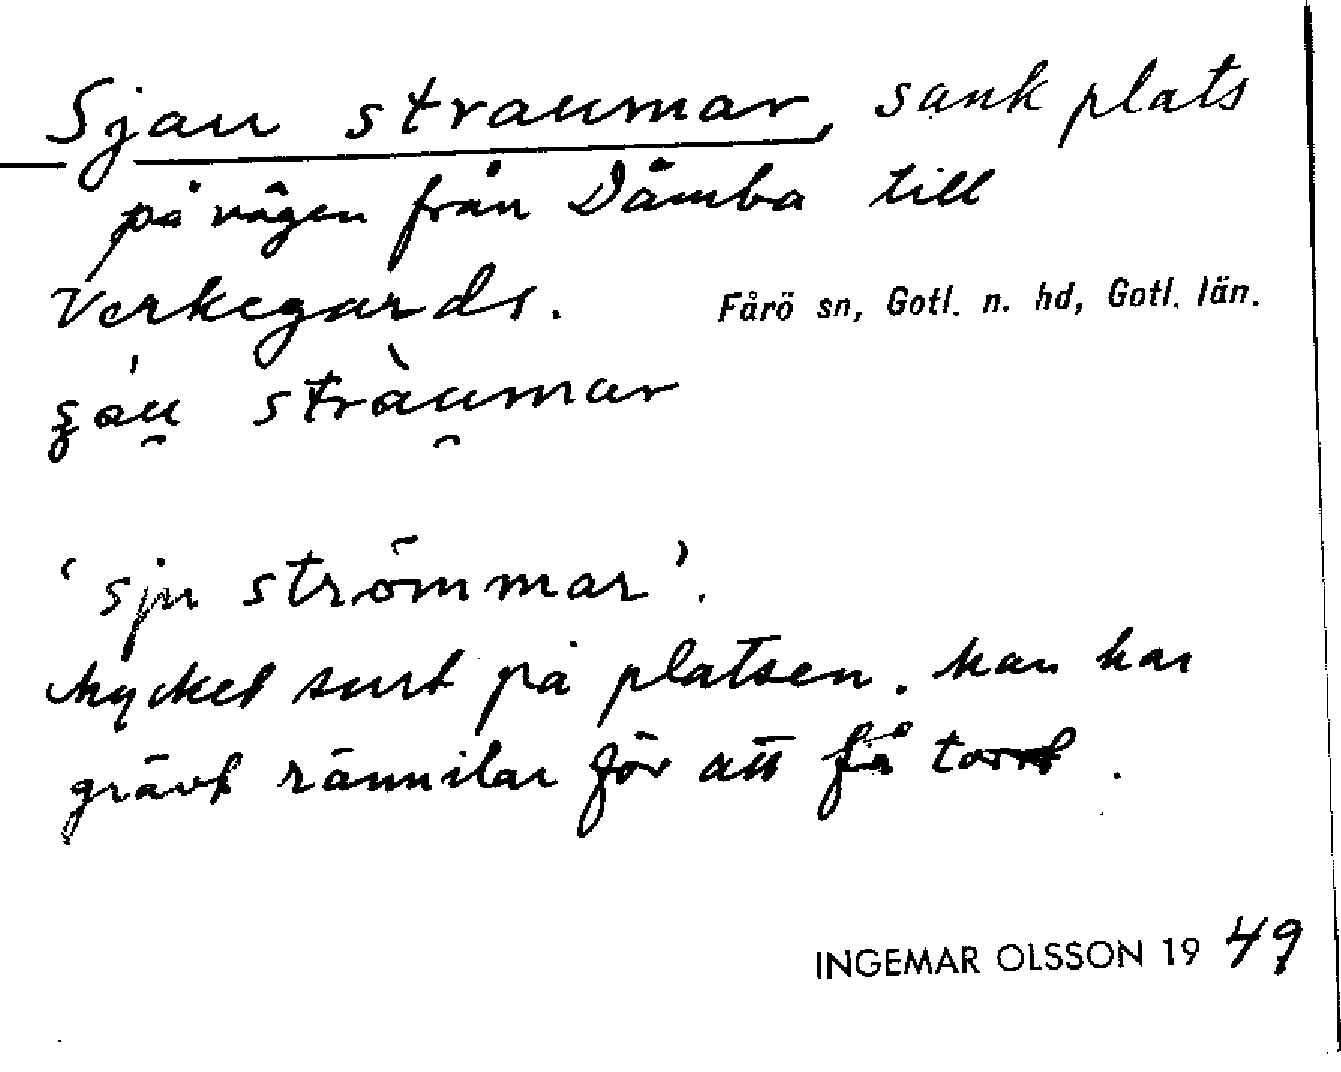 Sjau straumar, sank plats
på vägen från Dämba till
Verkegards. Fårö sn, Gotl. n. hd, Gotl. län.
straumar
'sju strömmar'.
Mycket surt på platsen. Man har
grävt rännilar för att få torrt.
INGEMAR OLSSON 1949